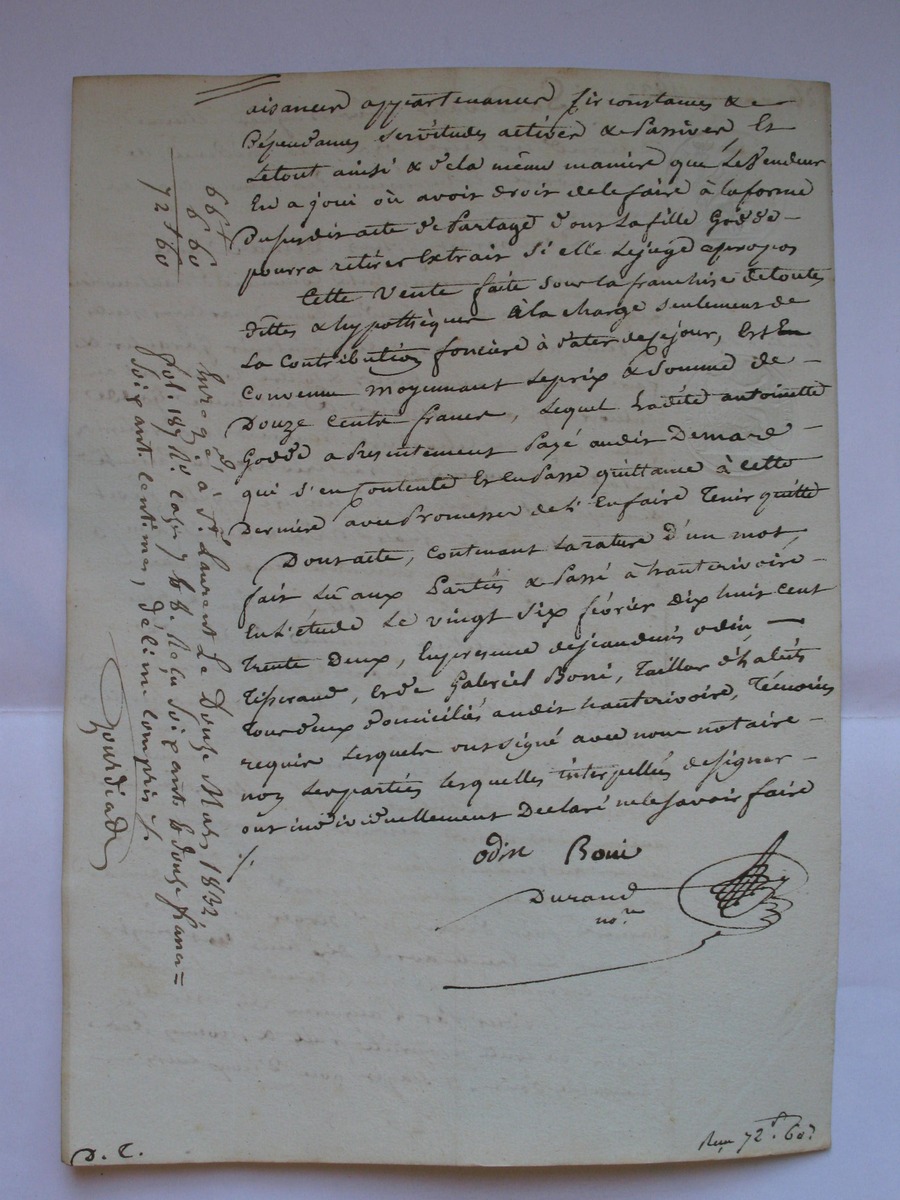 aisances appartenances circonstances &
Dépendances servitudes actives & Passives, Et
Letout ainsi & dela même manière que Levendeur
En a joui où avoir droit de le faire à la forme
Dususdit acte de Partage dont La fille Godde -
pourra retirer Extrait Si elle Lejuge apropos
Cette Vente faite sous la franchise detoutes
dettes & hypothèques à la charge seulement de
La Contribution foncière à dater decejour, Est En
Convenue moyennant Leprix & Somme de -
Douze Cents francs, Lequel Ladite antoinette
Godde a Présentement Payé audit Demard -
qui s'en Contente Et en Passe quittance à cette
Dernière avec Promesse de L'en faire Tenir quitte
Dont acte, Contenant La rature d'un mot,
fait Lû aux Parties & Passé à hauterivoire -
En L'étude Le vingt six février dix huit cent
Trente Deux, En présence de odin
Tisserand, Et de Gabriel Boni, Tailleur d'habits
Tous deux domiciliés audit hauterivoire, Témoins
requis Lesquels ont signé avec nous notaire -
non Les parties lesquelles interpellées de signer
ont individuellement Déclaré ne le savoir faire
./.
odin Boni
Durand
no.re
66 f
6 60
72 f 60
Enreg.é à St. Laurent Le Douze Mars 1832
fol. 189 R.o case 7 Reçu soixante & douze francs =
Soixante centimes, décime compris ./.
Gourdiade
D. C.
Reçu 72 f. 60